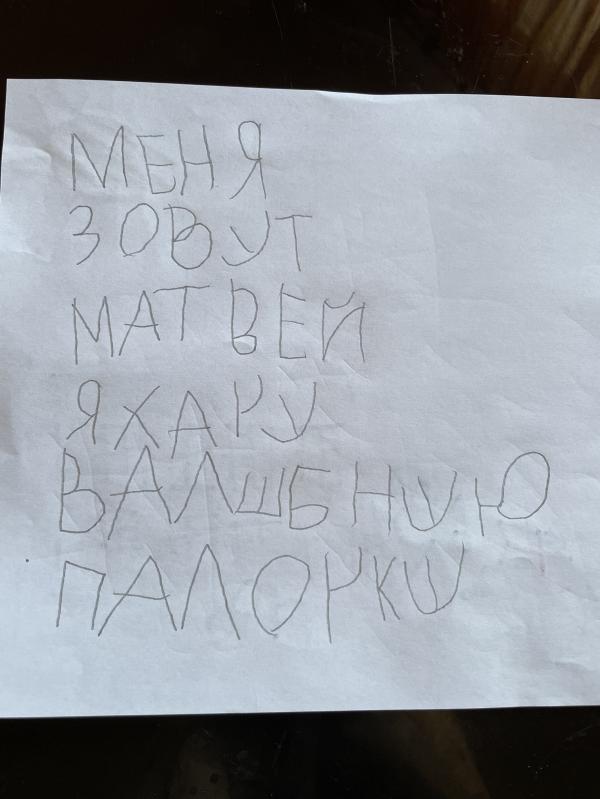 МЕНЯ
ЗОВУТ
МАТВЕЙ
ЯХАЧУ
ВАЛШБНУЮ
ПАЛОЧКУ